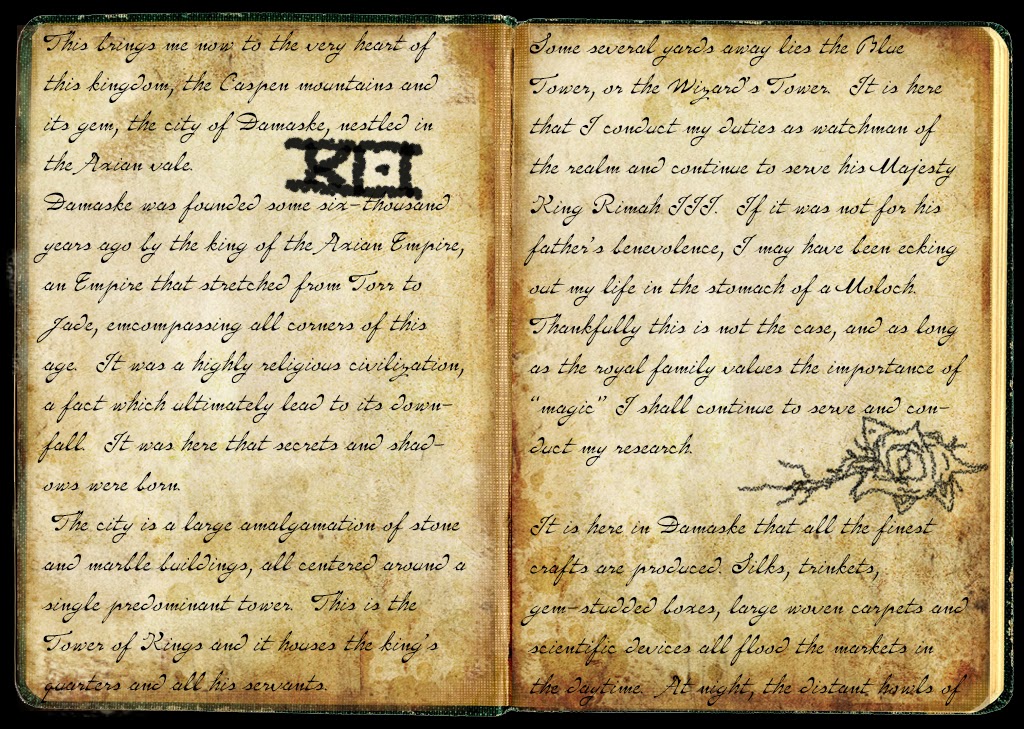 This brings me now to the very heart of
this kingdom, the Caspen mountains and
its gem, the city of Damaske, nestled in
the Axian vale.
Damaske was founded some six-thousand
years ago by the king of the Axian Empire,
an Empire that stretched from Torr to
Jade, emcompassing all corners of this
age. It was a highly religious civilization,
a fact which ultimately lead to its down-
fall. It was here that secrets and shad-
ows were born.
The city is a large amalgamation of stone
and marble buildings, all centered around a
single predominant tower. This is the
Tower of Kings and it houses the king's
quarters and all his servants.
Some several yards away lies the Blue
Tower, or the Wizard's Tower. It is here
that I conduct my duties as watchman of
the realm and continue to serve his Majesty
King Rimah III. If it was not for his
father's benevolence, I may have been ecking
out my life in the stomach of a Moloch.
Thankfully this is not the case, and as long
as the royal family values the importance of
"magic" I shall continue to serve and con-
duct my research.
It is here in Damaske that all the finest
crafts are produced. Silks, trinkets,
gem-studded boxes, large woven carpets and
scientific devices all flood the markets in
the daytime. At night, the distant howls of